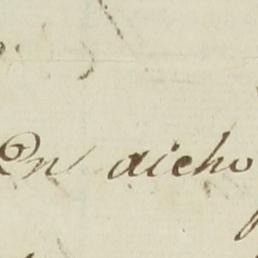 En dicho